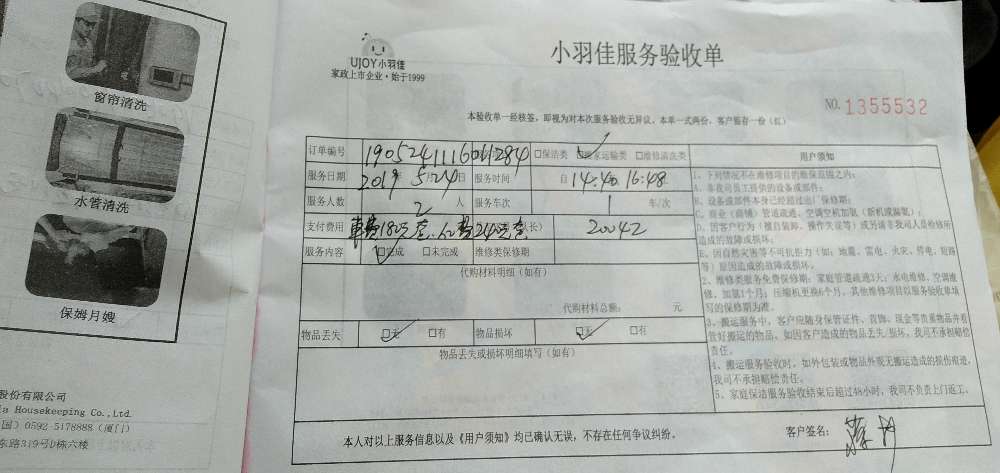 窗帘清洗
水管清洗
保姆月嫂
股份有限公司
ia Housekeeping Co.,Ltd.
国) 0592-5178888 (厦门)
东路319号D栋六楼
UJOY小羽佳
家政上市企业·始于1999
小羽佳服务验收单
NO. 1355532
本验收单一经核签，即视为对本次服务验收无异议。本单一式两份，客户留存一份（红）
订单编号 1905241116011284 □保洁类 □搬家运输类 □维修清洗类
服务日期 2019年5月24日 服务时间 自14:40 16:48
服务人数 2 人 服务车次 1 车/次
支付费用 车费180 240 队长) 20042
服务内容 □完成 □未完成 维修类保修期
代购材料明细（如有）
代购材料总额： 元
物品丢失 □无 □有 物品损坏 □无 □有
物品丢失或损坏明细填写（如有）
用户须知
1、下列情况不在维修项目的维保范围之内：
A、非我司员工提供的设备或部件；
B、设备或部件本身已经超过出厂保修期；
C、商业（商铺）管道疏通、空调空机加氨（新机或漏氨）；
D、因客户行为（擅自装卸、操作失误等）或另请非我司人员检修所
造成的故障或损坏；
E、因自然灾害等不可抗拒力（如：地震、雷电、火灾、停电、短路
等）原因造成的故障或损坏。
2、维修类服务免费保修期：家庭管道疏通3天；水电维修、空调维
修、加氨1个月；压缩机更换6个月，其他维修项目以服务验收单填
写的保修期为准。
3、搬运服务中，客户应随身保管证件、首饰、现金等贵重物品并看
管好搬运的物品，如因客户造成的物品丢失/损坏，我司不承担赔偿
责任。
4、搬运服务验收时，如外包装或物品外观无搬运造成的损伤痕迹，
我司不承担赔偿责任。
5、家庭保洁服务验收结束后超过48小时，我司不负责上门返工。
本人对以上服务信息以及《用户须知》均已确认无误，不存在任何争议纠纷。
客户签名：